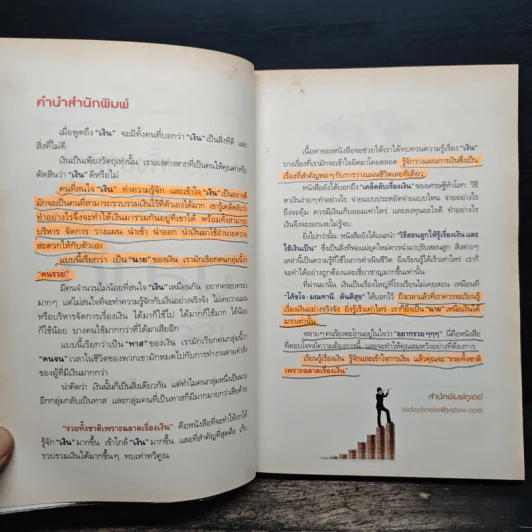 คำนำสำนักพิมพ์
เมื่อพูดถึง "เงิน" จะมีทั้งคนที่บอกว่า "เงิน" เป็นสิ่งที่ดี และ
สิ่งที่ไม่ดี
เงินเป็นเพียงวัตถุเท่านั้น เราเองต่างหากที่เป็นคนให้คุณค่าหรือ
ตัดสินว่า "เงิน" ดีหรือไม่
คนที่สนใจ "เงิน" ทำความรู้จัก และเข้าใจ "เงิน" เป็นอย่างดี
มักจะเป็นคนที่สามารถรวบรวมเงินไว้ที่ตัวเองได้มาก เขารู้เคล็ดลับว่า
ทำอย่างไรจึงจะทำให้เงินมารวมกันอยู่ที่เขาได้ พร้อมทั้งสามารถ
บริหาร จัดการ วางแผน นำเข้า นำออก นำเงินมาใช้อำนวยความ
สะดวกให้กับตัวเอง
แบบนี้เรียกว่า เป็น "นาย" ของเงิน เรามักเรียกคนกลุ่มนี้ว่า
"คนรวย"
มีคนจำนวนไม่น้อยที่สนใจ "เงิน" เหมือนกัน อยากครอบครอง
มากๆ แต่ไม่สนใจที่จะทำความรู้จักกับเงินอย่างจริงจัง ไม่เคยวางแผน
หรือบริหารจัดการเรื่องเงิน ได้มาก็ใช้ไป ได้มากก็ใช้มาก ได้น้อย
ก็ใช้น้อย บางคนใช้มากกว่าที่ได้มาเสียอีก
แบบนี้เรียกว่า "ทาส" ของเงิน เรามักเรียกคนกลุ่มนี้ว่า
"คนจน" เวลาในชีวิตของพวกเขามักหมดไปกับการทำงานตามคำสั่ง
ของผู้ที่มีเงินมากกว่า
น่าคิดว่า เงินนั้นก็เป็นสิ่งเดียวกัน แต่ทำไมคนกลุ่มหนึ่งเป็นนาย
อีกกลุ่มกลับเป็นทาส และกลุ่มคนที่เป็นทาสก็มีมากมายกว่าเสียด้วย
"รวยทั้งชาติเพราะฉลาดเรื่องเงิน" คือหนังสือที่จะทำให้เราได้
รู้จัก "เงิน" มากขึ้น เข้าใกล้ "เงิน" มากขึ้น และที่สำคัญที่สุดคือ เก็บ
รวบรวมเงินได้มากขึ้นๆ ทบเท่าทวีคูณ
เนื้อหาของหนังสือจะช่วยให้เราได้ทบทวนความรู้เรื่อง "เงิน"
บางเรื่องที่เรามักจะเข้าใจผิดมาโดยตลอด รู้จักวางแผนการเงินซึ่งเป็น
เรื่องที่สำคัญพอๆ กับการวางแผนชีวิตเลยทีเดียว
หนังสือยังได้บอกถึง "เคล็ดลับเรื่องเงิน" ของเศรษฐีทั่วโลก วิธี
หาเงินง่ายๆ ทำอย่างไร จ่ายแบบประหยัดจ่ายแบบไหน จ่ายอย่างไร
ถึงจะคุ้ม ควรมีเงินเก็บออมเท่าไหร่ และลงทุนอะไรดี ทำอย่างไร
เงินจึงจะงอกเงยไม่รู้จบ
ยิ่งไปกว่านั้น หนังสือยังได้แนะนำ "วิธีสอนลูกให้รู้เรื่องเงิน และ
ใช้เงินเป็น" ซึ่งเป็นสิ่งที่พ่อแม่ยุคใหม่ควรนำมาปรับสอนลูก สิ่งต่างๆ
เหล่านี้เป็นความรู้ที่ใช้ในการดำเนินชีวิต ยิ่งเรียนรู้ได้เร็วเท่าไหร่ เราก็
จะทำได้อย่างถูกต้องและเชี่ยวชาญมากขึ้นเท่านั้น
ที่ผ่านมานั้น เป็นเรื่องใหญ่ที่โรงเรียนไม่เคยสอน เหมือนที่
"โค้ชโจ - มณฑานี ตันติสุข" ได้บอกไว้ ถึงเวลาแล้วที่เราควรจะเรียนรู้
เรื่องเงินอย่างจริงจัง ยิ่งรู้เร็วเท่าไหร่ เราก็ยิ่งเป็น "นาย" เหนือเงินได้
มากเท่านั้น
หลายๆ คนร้องตะโกนอยู่ในใจว่า "อยากรวยๆๆๆ" นี่คือหนังสือ
ที่ตอบโจทย์ความต้องการนี้ และจะทำให้คุณสมหวังอย่างที่ต้องการ
เรียนรู้เรื่องเงิน รู้จักและเข้าใจการเงิน แล้วคุณจะ "รวยทั้งชาติ
เพราะฉลาดเรื่องเงิน"
สำนักพิมพ์ทูเดย์
todaybooks@yahoo.com